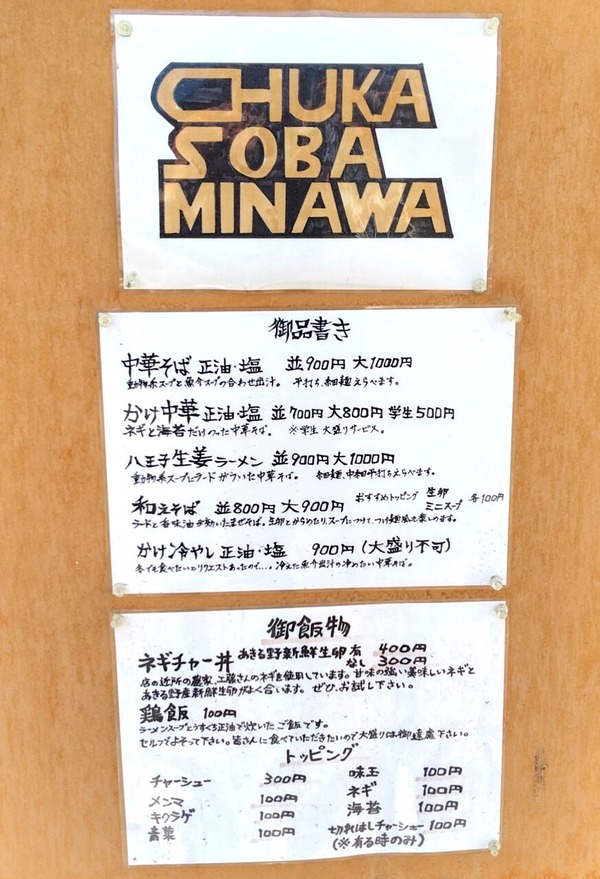 CHUKA
SOBA
MINAWA
御品書き
中華そば 正油・塩 並900円 大1000円
動物系スープと魚介スープの合わせ出汁。 平打ち、細麺えらべます。
かけ中華 正油・塩 並700円 大800円 学生500円
ネギと海苔だけのった中華そば。 ※学生 大盛りサービス。
八王子生姜ラーメン 並900円 大1000円
動物系スープにラードがういた中華そば。 細麺、中細平打ちえらべます。
和えそば 並800円 大900円 おすすめトッピング 生卵 ミニスープ 各100円
ラードと香味油が効いたまぜそば。生卵とからめたり、スープにつけて、つけ麺風も楽しめます。
かけ冷やし 正油・塩 900円 (大盛り不可)
冬でも食べたいとリクエストあったので.... 冷えた魚介出汁の冷めたい中華そば。
御飯物
ネギチャー丼 あきる野新鮮生卵有 400円
なし 300円
店の近所の農家、工藤さんのネギを使用しています。甘味の強い美味しいネギと
あきる野産新鮮生卵がよく合います。 ぜひ、お試し下さい。
鶏飯 100円
ラーメンスープとうすくち正油で炊いたご飯です。
セルフでよそって下さい。皆さんに食べていただきたいので大盛りは御遠慮下さい。
トッピング
チャーシュー 300円 味玉 100円
メンマ 100円 ネギ 100円
キクラゲ 100円 海苔 100円
青菜 100円 切れはしチャーシュー 100円
(※有る時のみ)